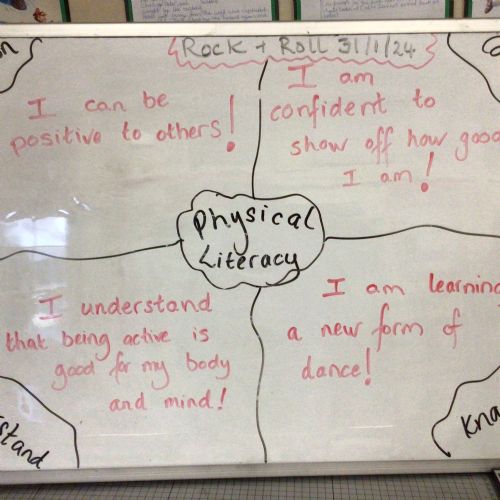 Rock + Roll 31/1/24
I can be
positive to others!
I am
confident to
show off how good
I am!
Physical
Literacy
I understand
that being active is
good for my body
and mind!
I am learning
a new form of
dance!